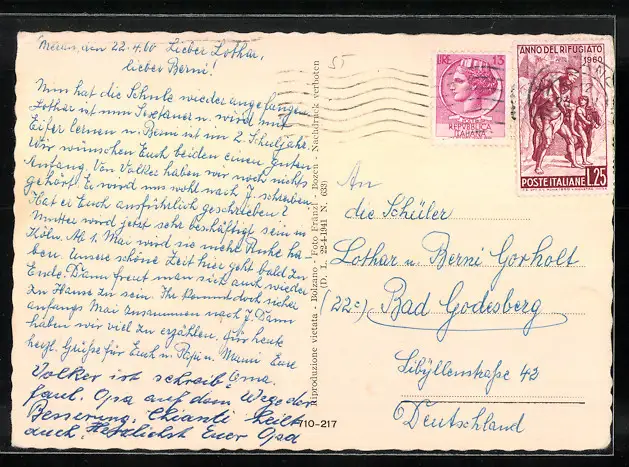 Meran, den 22.4.60 Lieber Lothar,
lieber Berni!
Nun hat die Schule wieder angefangen
Lothar ist nun Sextaner u. wird mit
Eifer lernen u. Berni ist im 2. Schuljahr.
Wir wünschen Euch beiden einen guten
Anfang. Von Volker haben wir noch nichts
gehört. Er wird uns wohl nach J. schreiben.
Hat er Euch ausführlich geschrieben?
Mutter wird jetzt sehr beschäftigt sein in
Köln. Ab 1. Mai wird sie mehr Ruhe ha-
ben. Unsere schöne Zeit hier geht bald zu
Ende. Dann freut man sich auch wieder
zu Hause zu sein. Ihr kommt doch sicher
anfangs Mai zusammen nach J. Dann
haben wir viel zu erzählen. Für heute
herzl. Grüße für Euch u. Papi u. Mammi Eure
Volker ist schreib Oma.
faul. Opa auf dem Wege der
Besserung. Chianti heilt
auch. Herzlichst Euer Opa
Riproduzione vietata - Bolzano - Foto Fränzl - Bozen - Nachdruck verboten
(D. L. 22-4-1941 N. 633)
710-217
LIRE 13
REPUBBLICA
ITALIANA
ANNO DEL RIFUGIATO
1960
POSTE ITALIANE L.25
An
die Schüler
Lothar u. Berni Gorholt
(22c) Bad Godesberg
Sibyllenstraße 42
Deutschland